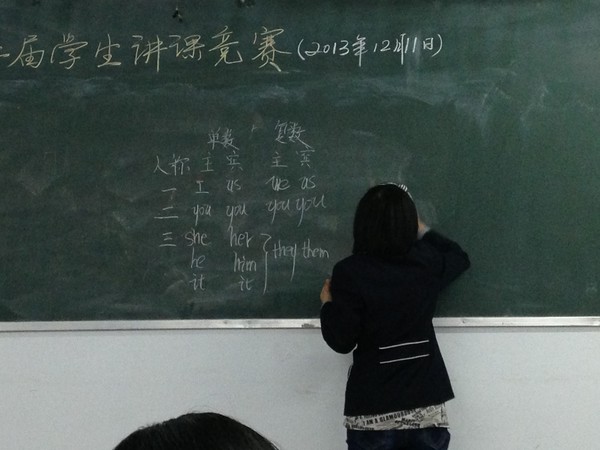 届学生讲课竞赛(2013年12月11日)
单数 复数
人称 主 宾 主 宾
一 I us we us
二 you you you you
三 she her they them
he him
it it